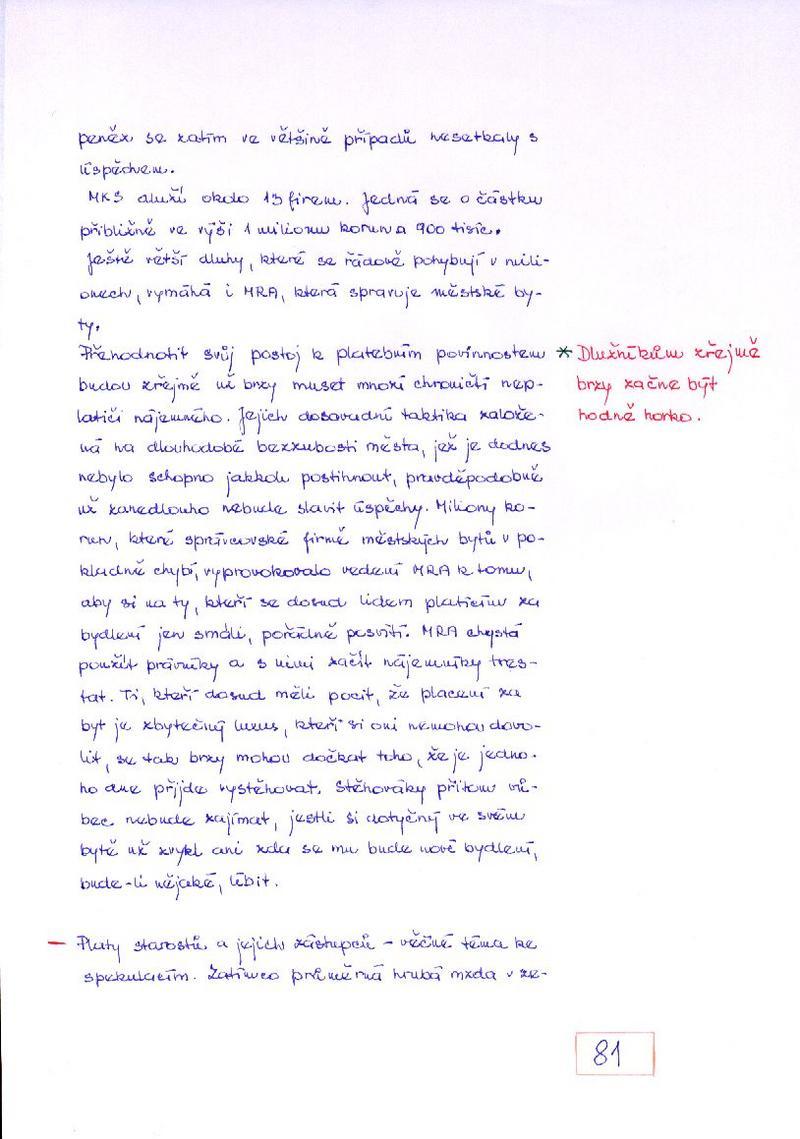 peněz se zatím ve většině případů nesetkaly s
úspěchem.
MKS dluží okolo 13 firem. Jedná se o částku
přibližně ve výši 1 milionu korun a 900 tisíc.
Ještě větší dluhy, které se řádově pohybují v mili-
onech, vymáhá i MRA, která spravuje městské by-
ty.
Přehodnotit svůj postoj k platebním povinnostem
budou zřejmě už brzy muset mnozí chroničtí nep-
latiči nájemného. Jejich dosavadní taktika založe-
ná na dlouhodobé bezzubosti města, jež je dodnes
nebylo schopno jakkoli postihnout, pravděpodobně
už zanedlouho nebude slavit úspěchy. Miliony ko-
run, které správcovské firmě městských bytů v po-
kladně chybí, vyprovokovalo vedení MRA k tomu,
aby si na ty, kteří se dosud lidem platícím za
bydlení jen smáli, pořádně posvítí. MRA chystá
použít právníky a s nimi začít nájemníky tres-
tat. Ti, kteří dosud měli pocit, že placení za
byt je zbytečný luxus, kteří si oni nemohou dovo-
lit, se tak brzy mohou dočkat toho, že je jedno-
ho dne přijde vystěhovat. Stěhováky přitom vů-
bec nebude zajímat, jestli si dotyčný ve svém
bytě už zvykl ani zda se mu bude nové bydlení,
bude-li nějaké, líbit.
* Dlužníkům zřejmě
brzy začne být
hodně horko.
– Platy starostů a jejich zástupců – věčné téma ke
spekulacím. Zatímco průměrná hrubá mzda v ze-
81